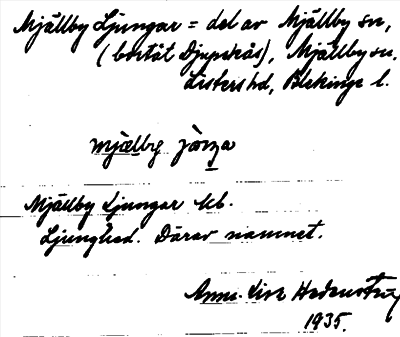 Mjällby Ljungar = del av Mjällby sn,
(bortåt Djupekås), Mjällby sn.
Listers hd, Blekinge l.
mjälby
Mjällby Ljungar kb.
Ljunghed. Därav namnet.
1935.